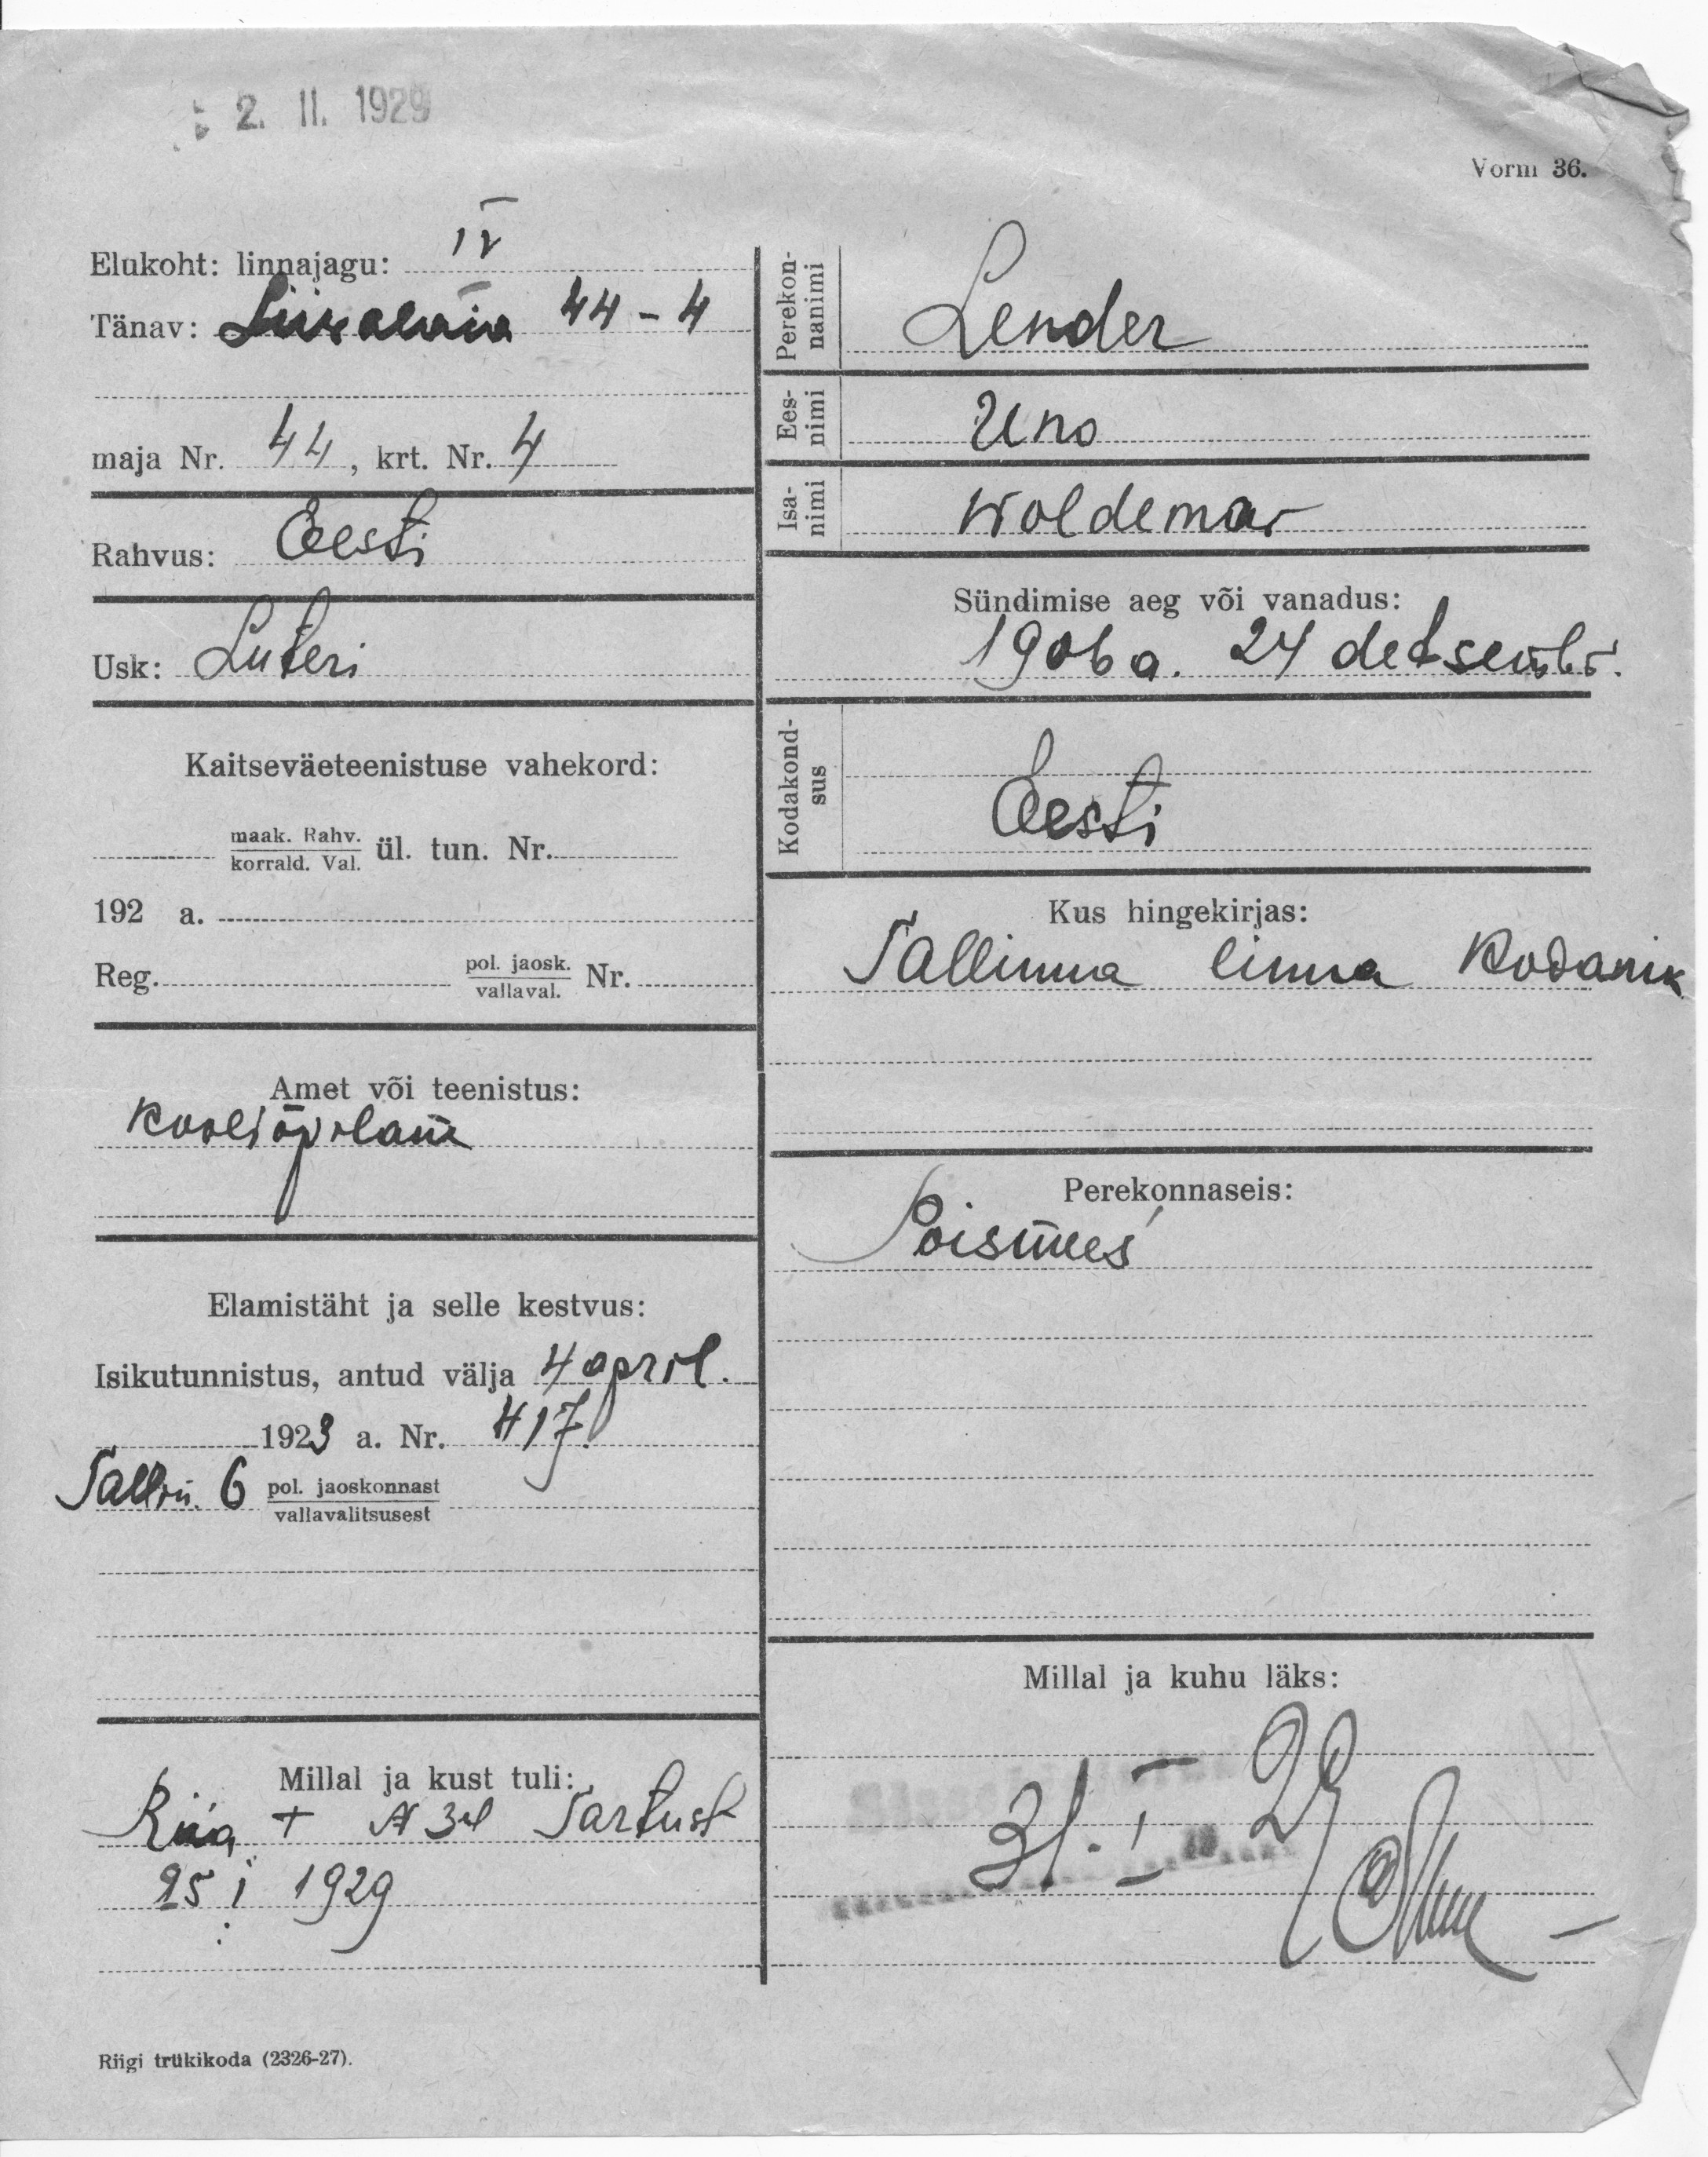 2. II. 1929
Vorm 36.
Elukoht: linnajagu: IV
Tänav: 44-4
maja Nr. 44, krt. Nr. 4
Rahvus: Eesti
Usk: Luteri
Kaitseväeteenistuse vahekord:
maak. Rahv.
korrald. Val. ül. tun. Nr.
192 a.
Reg. pol. jaosk. Nr.
vallaval.
Amet või teenistus:
kooliõpilane
Elamistäht ja selle kestvus:
Isikutunnistus, antud välja 4 april.
1923 a. Nr. 417.
Tallin. 6 pol. jaoskonnast
vallavalitsusest
Millal ja kust tuli:
Riia t N 34 Tartust
25 I 1929
Riigi trükikoda (2326-27).
Perekon-
nanimi Lender
Ees-
nimi Uno
Isa-
nimi Woldemar
Sündimise aeg või vanadus:
1906 a. 24 detsembr.
Kodakond-
sus Eesti
Kus hingekirjas:
Tallinna linna kodanik
Perekonnaseis:
Poismees
Millal ja kuhu läks:
31. I 29